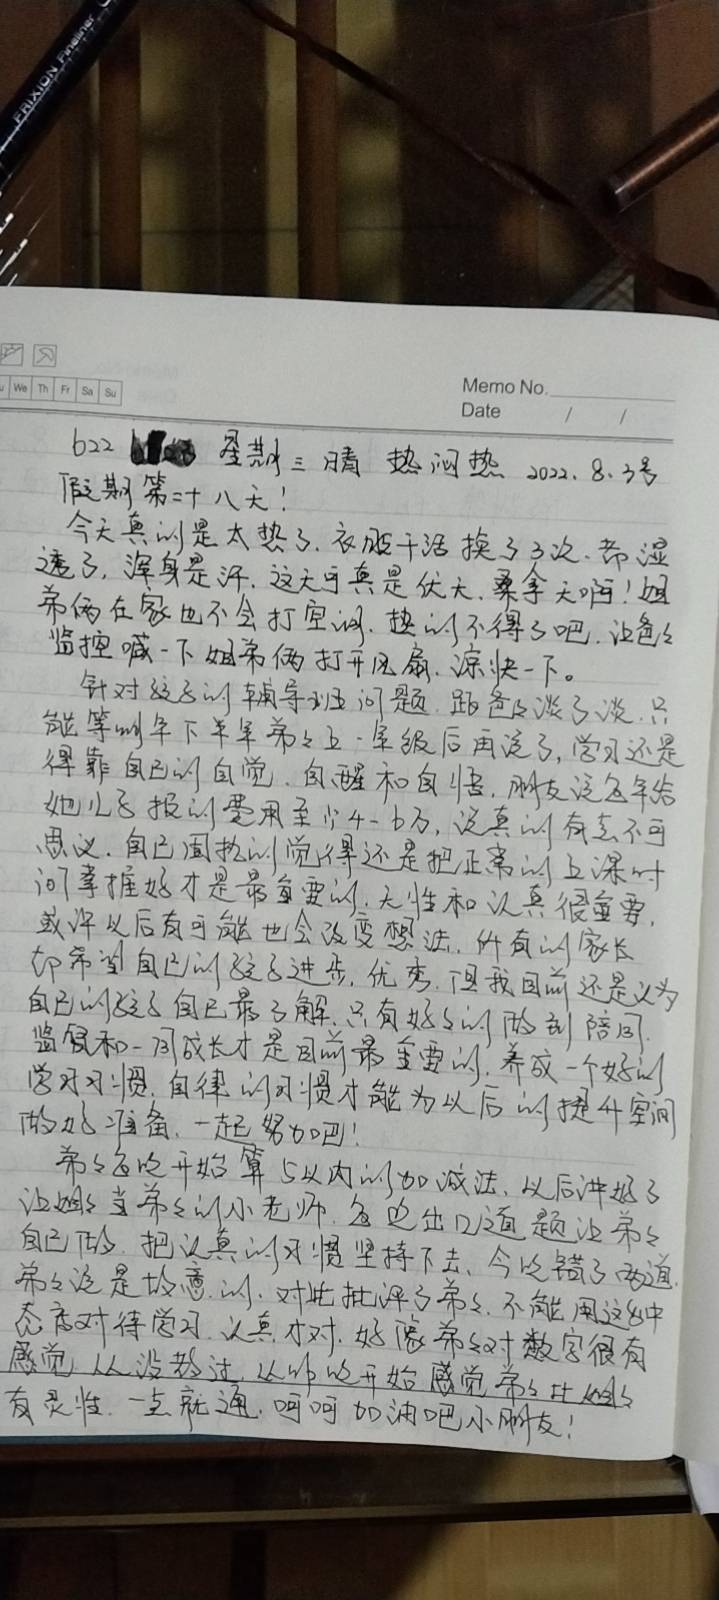 FRIXION Fineliner
We Th Fr Sa Su
Memo No.
Date / /
622 星期三 晴 热闷热 2022.8.3号
假期第二十八天!
今天真的是太热了.衣服干活换了3次.都湿
透了,浑身是汗.这天可真是伏天.桑拿天啊!姐
弟俩在家也不会打空调.热的不得了吧.让爸爸
监控喊一下姐弟俩打开风扇.凉快一下。
针对孩子的辅导班问题.跟爸爸谈了谈.只
能等明年下半年弟弟上一年级后再说了,学习还是
得靠自己的自觉.自醒和自悟.朋友说每年给
她儿子报的费用至少4-6万,说真的有点不可
思议.自己固执的觉得还是把正常的上课时
间掌握好才是最重要的.天性和认真很重要,
或许以后有可能也会改变想法.所有的家长
都希望自己的孩子进步,优秀.但我目前还是认为
自己的孩子自己最了解.只有好好的做到陪同.
监督和一同成长才是目前最重要的.养成一个好的
学习习惯,自律的习惯才能为以后的提升空间
做好准备,一起努力吧!
弟弟每晚开始算5以内的加减法,以后讲好了
让姐姐当弟弟的小老师.每边出12道题让弟弟
自己做.把认真的习惯坚持下去、今晚错了两道.
弟弟说是故意的.对此批评了弟弟.不能用这种
态度对待学习.认真才对.好像弟弟对数字很有
感觉 从没教过,从昨晚开始感觉弟弟比姐姐
有灵性.一点就通.呵呵 加油吧小朋友!